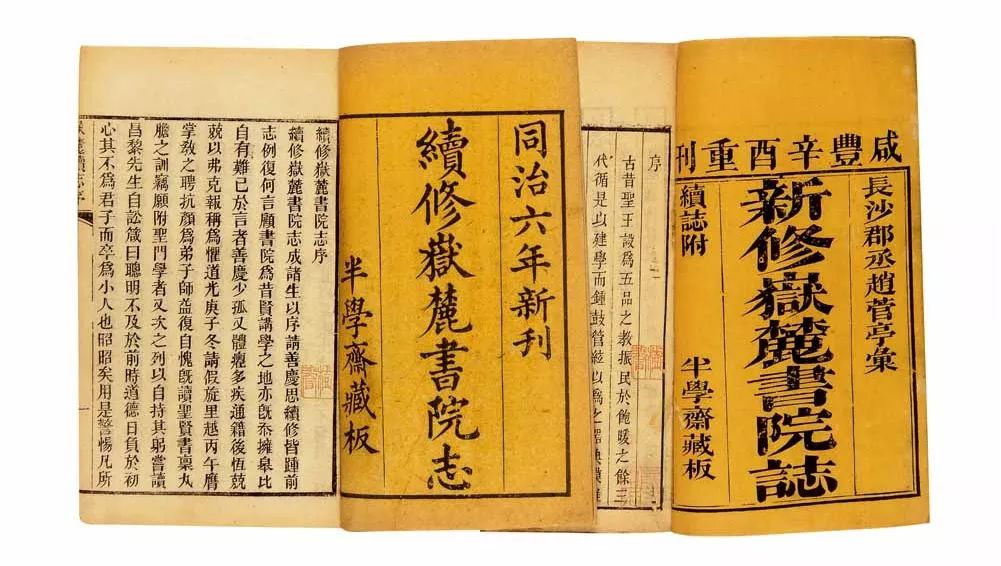 咸豐辛酉重刊
長沙郡丞趙菅亭彙
新修嶽麓書院誌
續誌附
半學齋藏板
序
古昔聖王設爲五品之教振民於飽暖之餘三
代循是以建學而鍾鼓管絃以爲之器
同治六年新刊
續修嶽麓書院志
半學齋藏板
續修嶽麓書院志序
續修嶽麓書院志成諸生以序請善慶思續修皆踵前
志例復何言顧書院爲昔賢講學之地亦旣忝擁皋比
自有難已於言者善慶少孤又體癯多疾通籍後恆兢
兢以弗克報稱爲懼道光庚子冬請假旋里越丙午膺
掌敎之聘抗顏爲弟子師益復自愧旣讀聖賢書稟丸
膽之訓竊願附聖門學者又次之列以自持其躬嘗讀
昌黎先生自訟箴曰聰明不及於前時道德日負於初
心其不爲君子而卒爲小人也昭昭矣用是警惕凡所